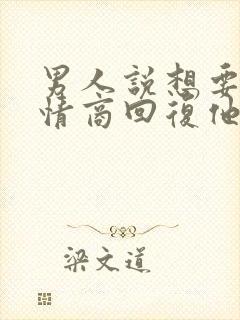 男人說想要
情商回復他
梁文道